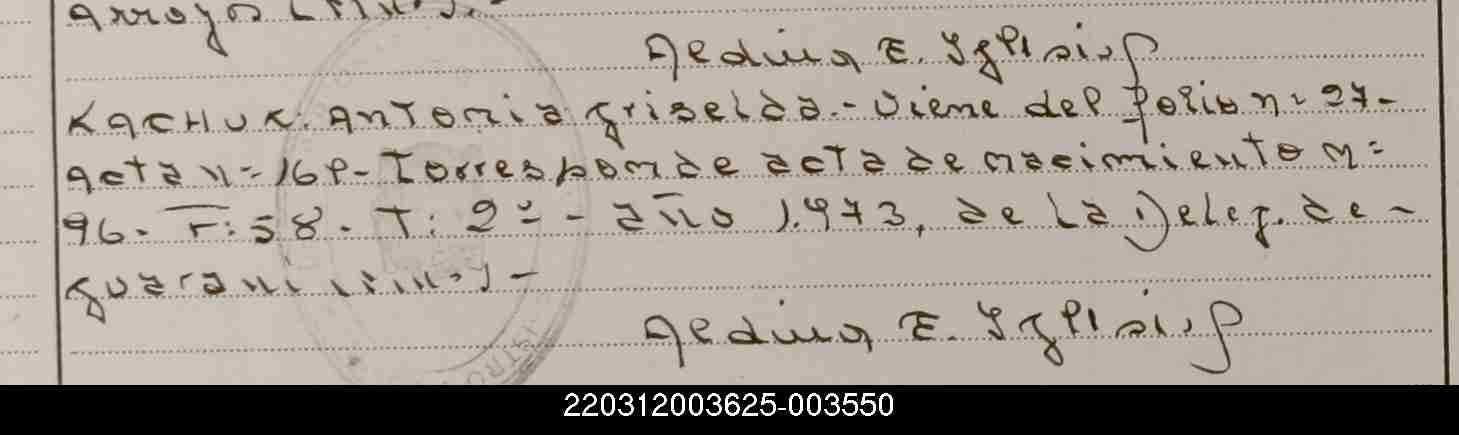 Arroyos (Mnes).-
Aedina E. Iglesias
KACHUK: Antonia Griselda.- Viene del folio nº 27-
acta nº 168- Corresponde acta de nacimiento nº
96- F: 58. T: 2º - año 1.973, de la Deleg. de -
Guaraní (Mnes)-
Aedina E. Iglesias
220312003625-003550